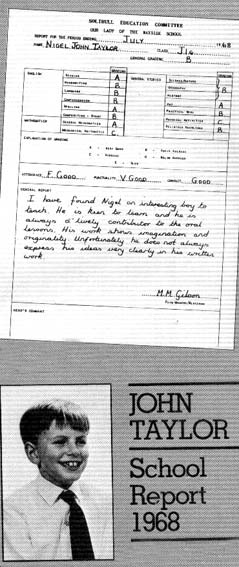 SOLIHULL EDUCATION COMMITTEE
OUR LADY OF THE WAYSIDE SCHOOL
REPORT FOR THE PERIOD ENDING JULY 1968
NAME NIGEL JOHN TAYLOR CLASS J14
GENERAL GRADING B
ENGLISH
READING A
HANDWRITING B
LANGUAGE B
COMPREHENSION B
SPELLING A
MATHEMATICS
C
GENERAL STUDIES
GEOGRAPHY B
HISTORY
ART A
B
EXPLANATION OF GRADING
ATTENDANCE F. GOOD PUNCTUALITY V. GOOD CONDUCT GOOD
GENERAL REPORT
I have found Nigel an interesting boy to
teach. He is keen to learn and he is
always a lively contributor to the oral
lessons. His work shows imagination and
originality. Unfortunately he does not always
express his ideas very clearly in his written
work.
M.M. Gibson
HEAD'S COMMENT
JOHN
TAYLOR
School
Report
1968